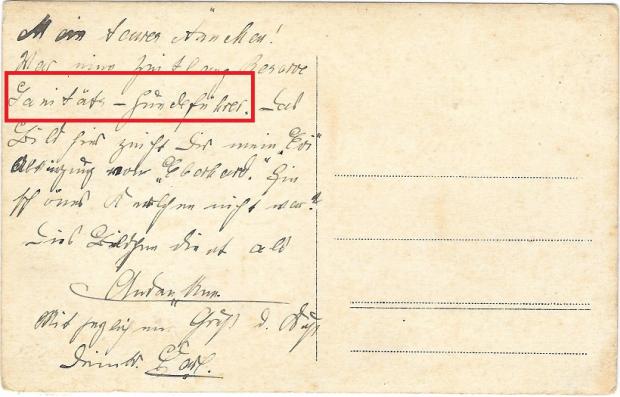 Mein teures Ännchen!
War nun zeitlang Reserve
Sanitäts-Hundeführer. Das
Bild hier zeigt Dir mein
Abkürzung von „Eberhard." Ein
schönes Kerlchen nicht war?
Dies Bildchen dient als
Andenken.
Mit Gruß Kuß